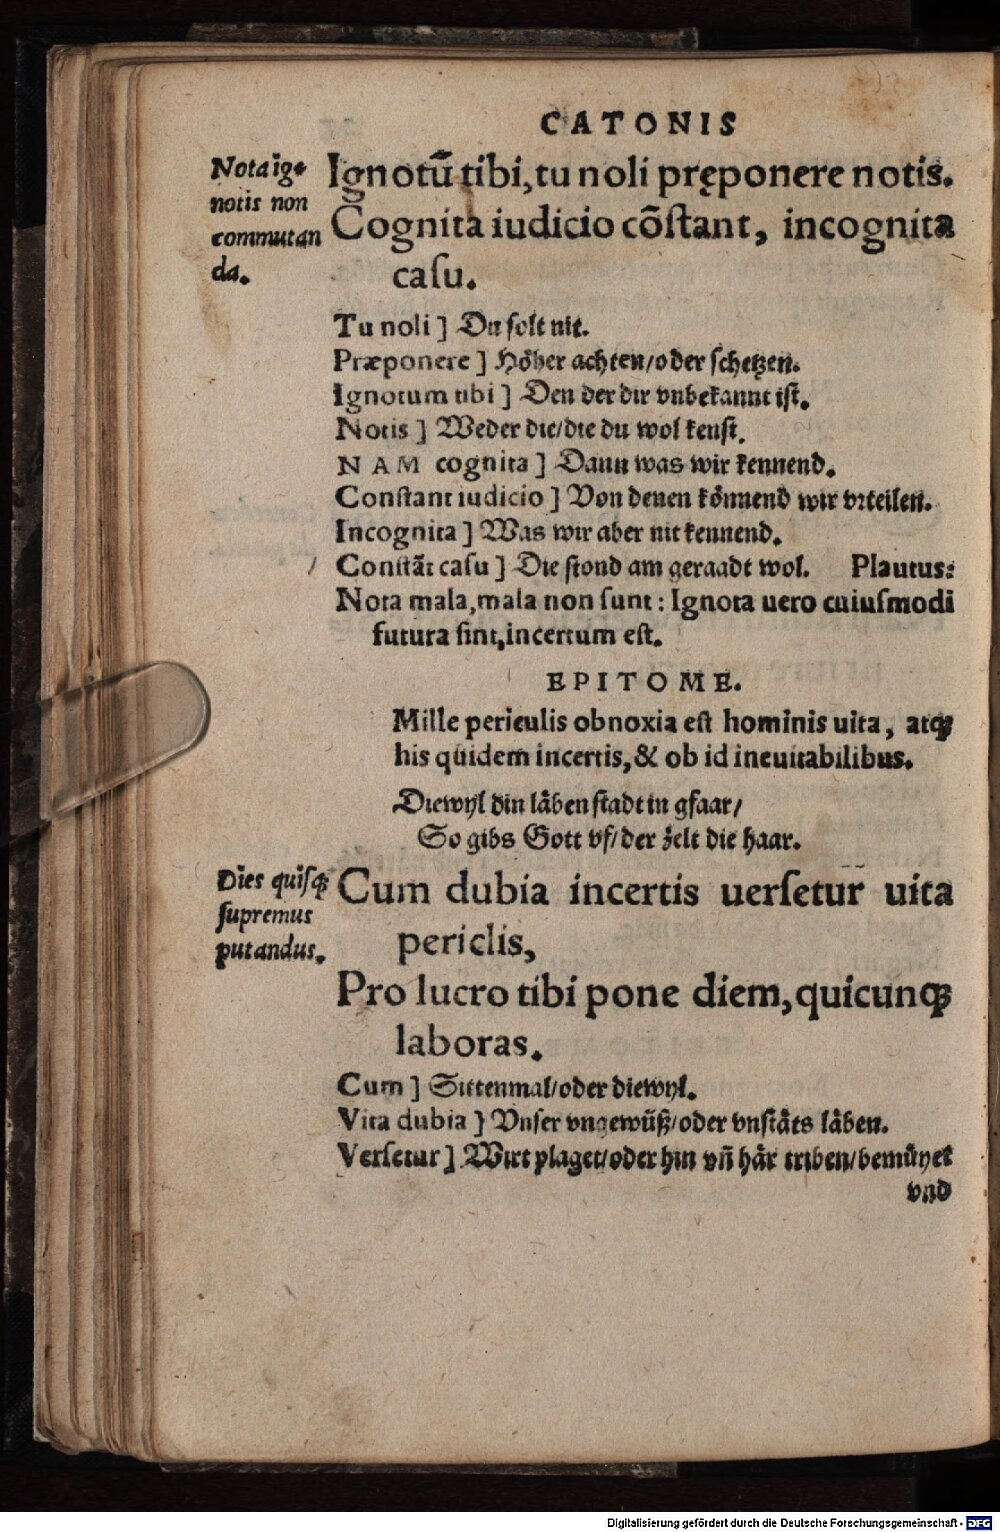 CATONIS
Nota ig-
notis non
commutan
da.
Ignotū tibi, tu noli pręponere notis.
Cognita iudicio cōſtant, incognita
caſu.
Tu noli] Du ſolt nit.
Præponere] Höher achten/oder ſchetzen.
Ignotum tibi] Den der dir vnbekannt iſt.
Notis] Weder die/die du wol kenſt.
NAM cognita] Dann was wir kennend.
Conſtant iudicio] Von denen könnend wir vrteilen.
Incognita] Was wir aber nit kennend.
Conſtāt caſu] Die ſtond am geraadt wol. Plautus:
Nota mala, mala non ſunt: Ignota uero cuiuſmodi
futura ſint, incertum eſt.
EPITOME.
Mille periculis obnoxia eſt hominis uita, atq;
his quidem incertis, & ob id ineuitabilibus.
Diewyl din läben ſtadt in gfaar/
So gibs Gott vf/der zelt die haar.
Dies quiſq;
ſupremus
putandus.
Cum dubia incertis uerſetur uita
periclis,
Pro lucro tibi pone diem, quicunq;
laboras.
Cum] Sittenmal/oder diewyl.
Vita dubia] Vnſer vngewüß/oder vnſtäts läben.
Verſetur] Wirt plaget/oder hin vñ här triben/bemüyet
vnd
Digitalisierung gefördert durch die Deutsche Forschungsgemeinschaft - DFG